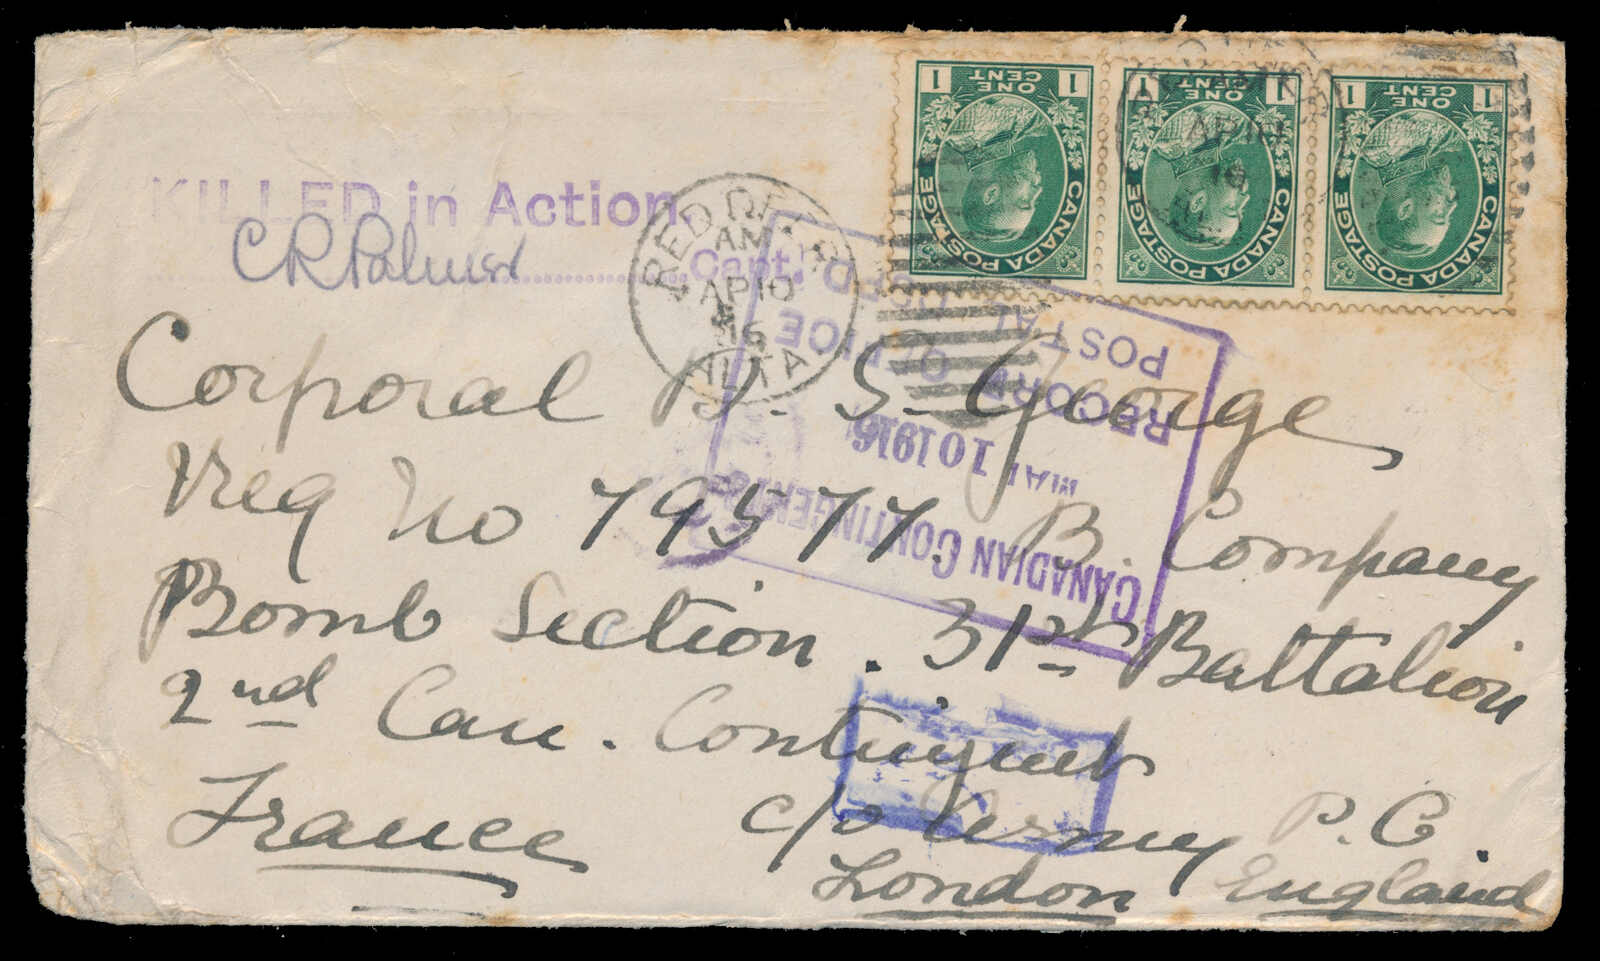 KILLED in Action.
C R Palmer
Capt.
RED DEER
AM
AP 10
16
ALTA
1 ONE CENT 1
CANADA POSTAGE
1 ONE CENT 1
CANADA POSTAGE
1 ONE CENT 1
CANADA POSTAGE
AP 10
16
CANADIAN CONTINGENTS
MAY 10 1916
RECORD OFFICE
POSTAL
Corporal H. S. George
Reg No 79577. B. Company
Bomb Section. 31st Battalion
2nd Can. Contingent
France c/o Army P.O.
London England